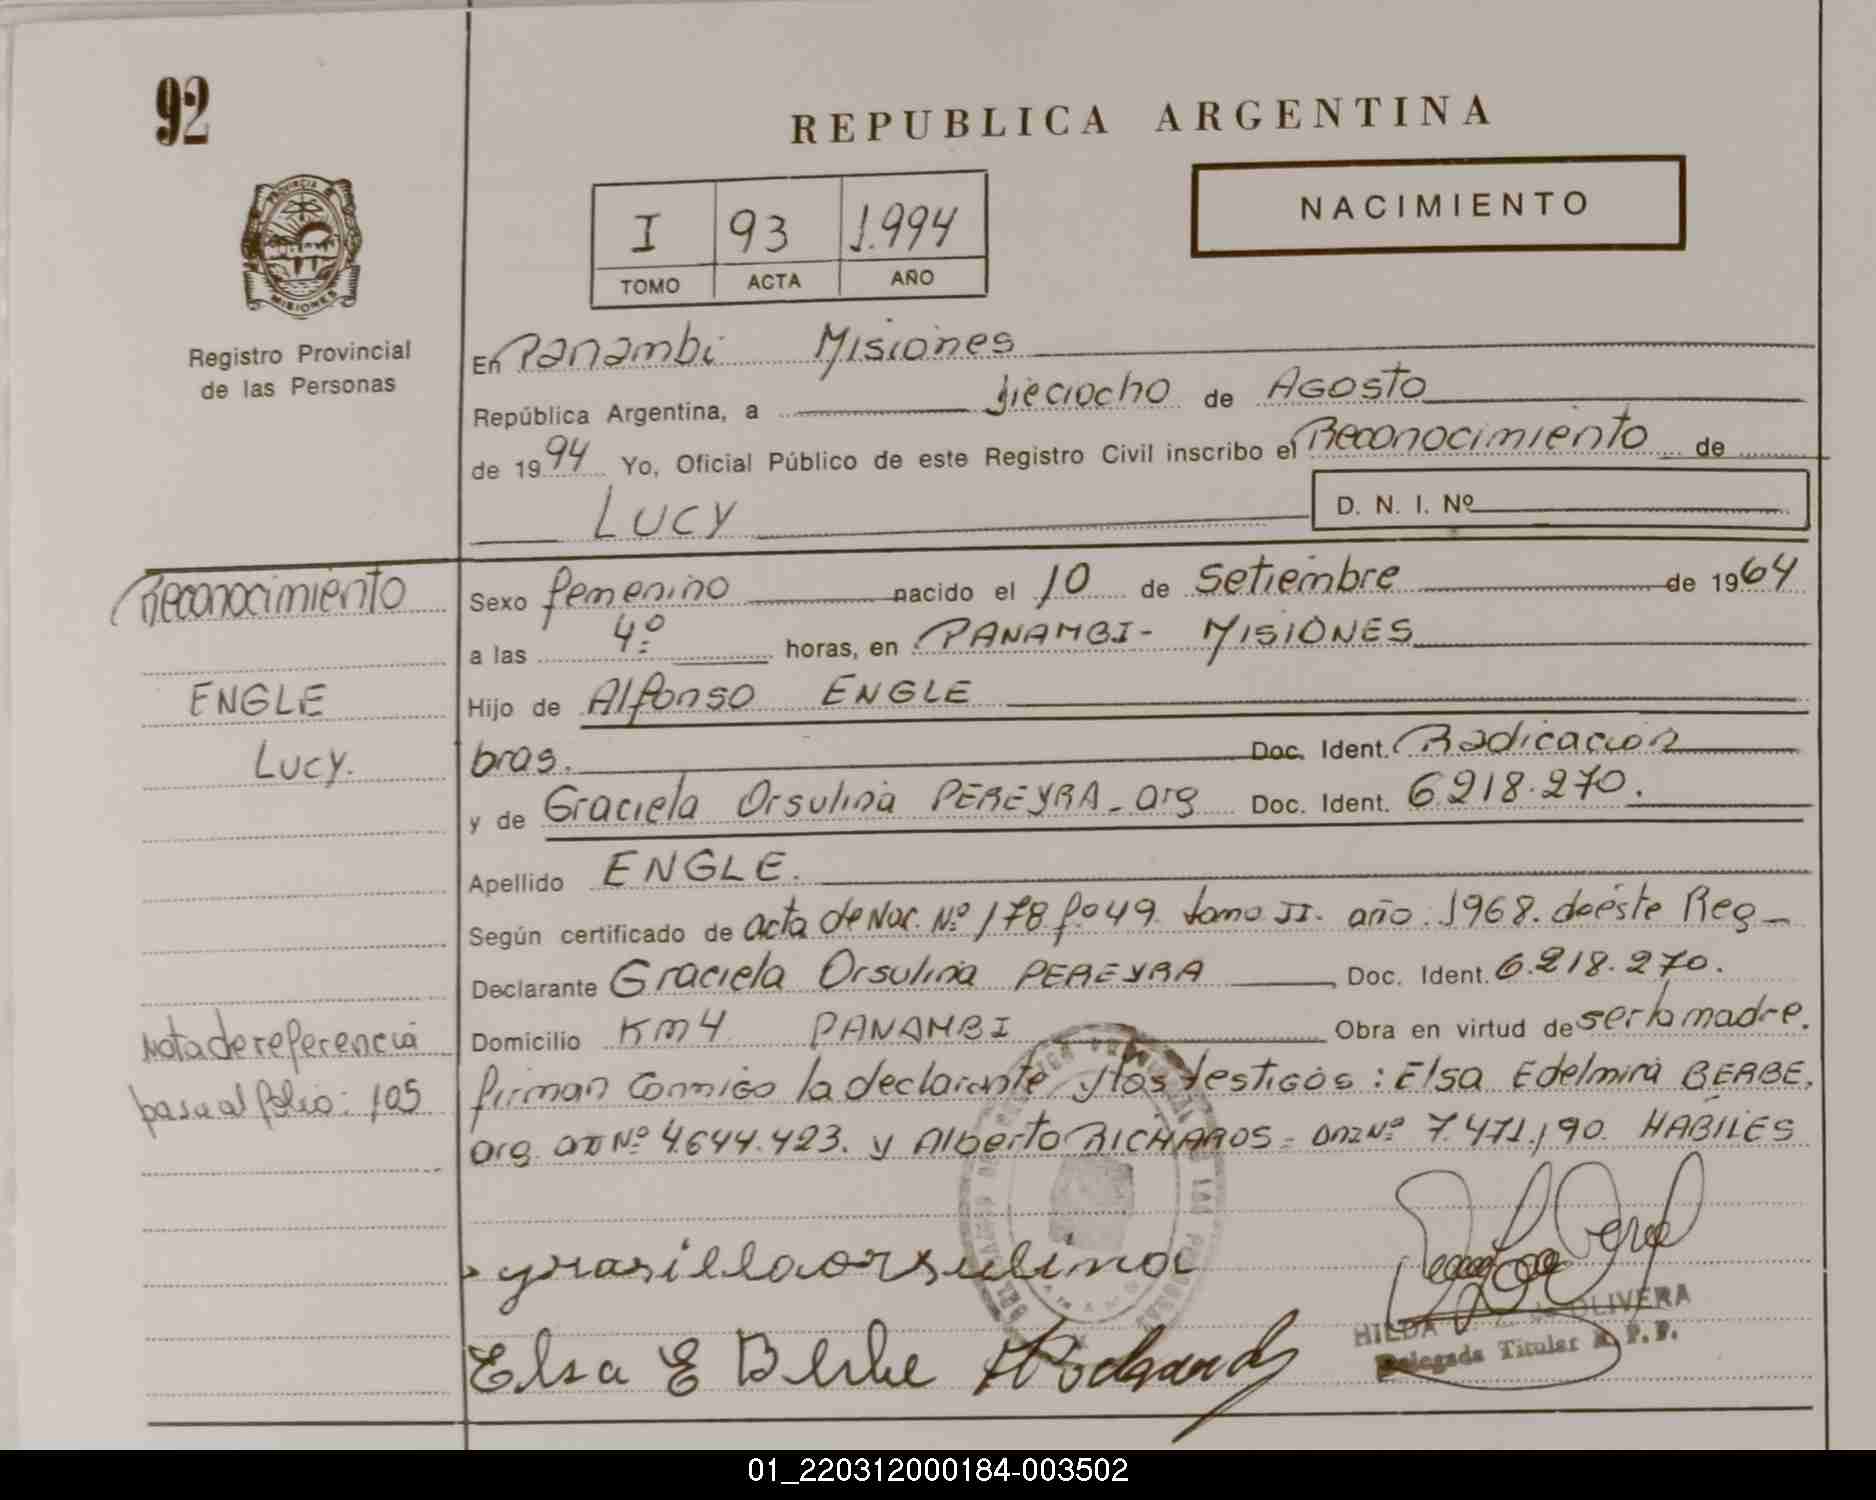 92
REPUBLICA ARGENTINA
NACIMIENTO
I 93 1.994
TOMO ACTA AÑO
PROVINCIA DE
MISIONES
Registro Provincial
de las Personas
En Panambi Misiones
República Argentina, a dieciocho de Agosto
de 1994 Yo, Oficial Público de este Registro Civil inscribo el Reconocimiento de
LUCY D. N. I. Nº
Reconocimiento
ENGLE
Lucy.
Sexo femenino nacido el 10 de Setiembre de 1964
a las 4º horas, en PANAMBI- MISIONES
Hijo de Alfonso ENGLE
bras. Doc. Ident. Radicación
y de Graciela Orsulina PEREYRA - arg Doc. Ident. 6.218.270.
Apellido ENGLE.
Según certificado de acta de Nac. Nº 178 fº 49 tomo II. año 1968. de éste Reg-
Declarante Graciela Orsulina PEREYRA Doc. Ident. 6.218.270.
Domicilio Km 4 PANAMBI Obra en virtud de ser la madre.
Nota de referencia
pasa al folio: 105
firman conmigo la declarante y los testigos: Elsa Edelmira BERBE,
arg Nº 4.644.423. y Alberto RICHARDS - Nº 7.471.190. HABILES
grasilla orsulina
Elsa E Berbe
HILDA OLIVERA
Delegada Titular R. P. P.
01_220312000184-003502